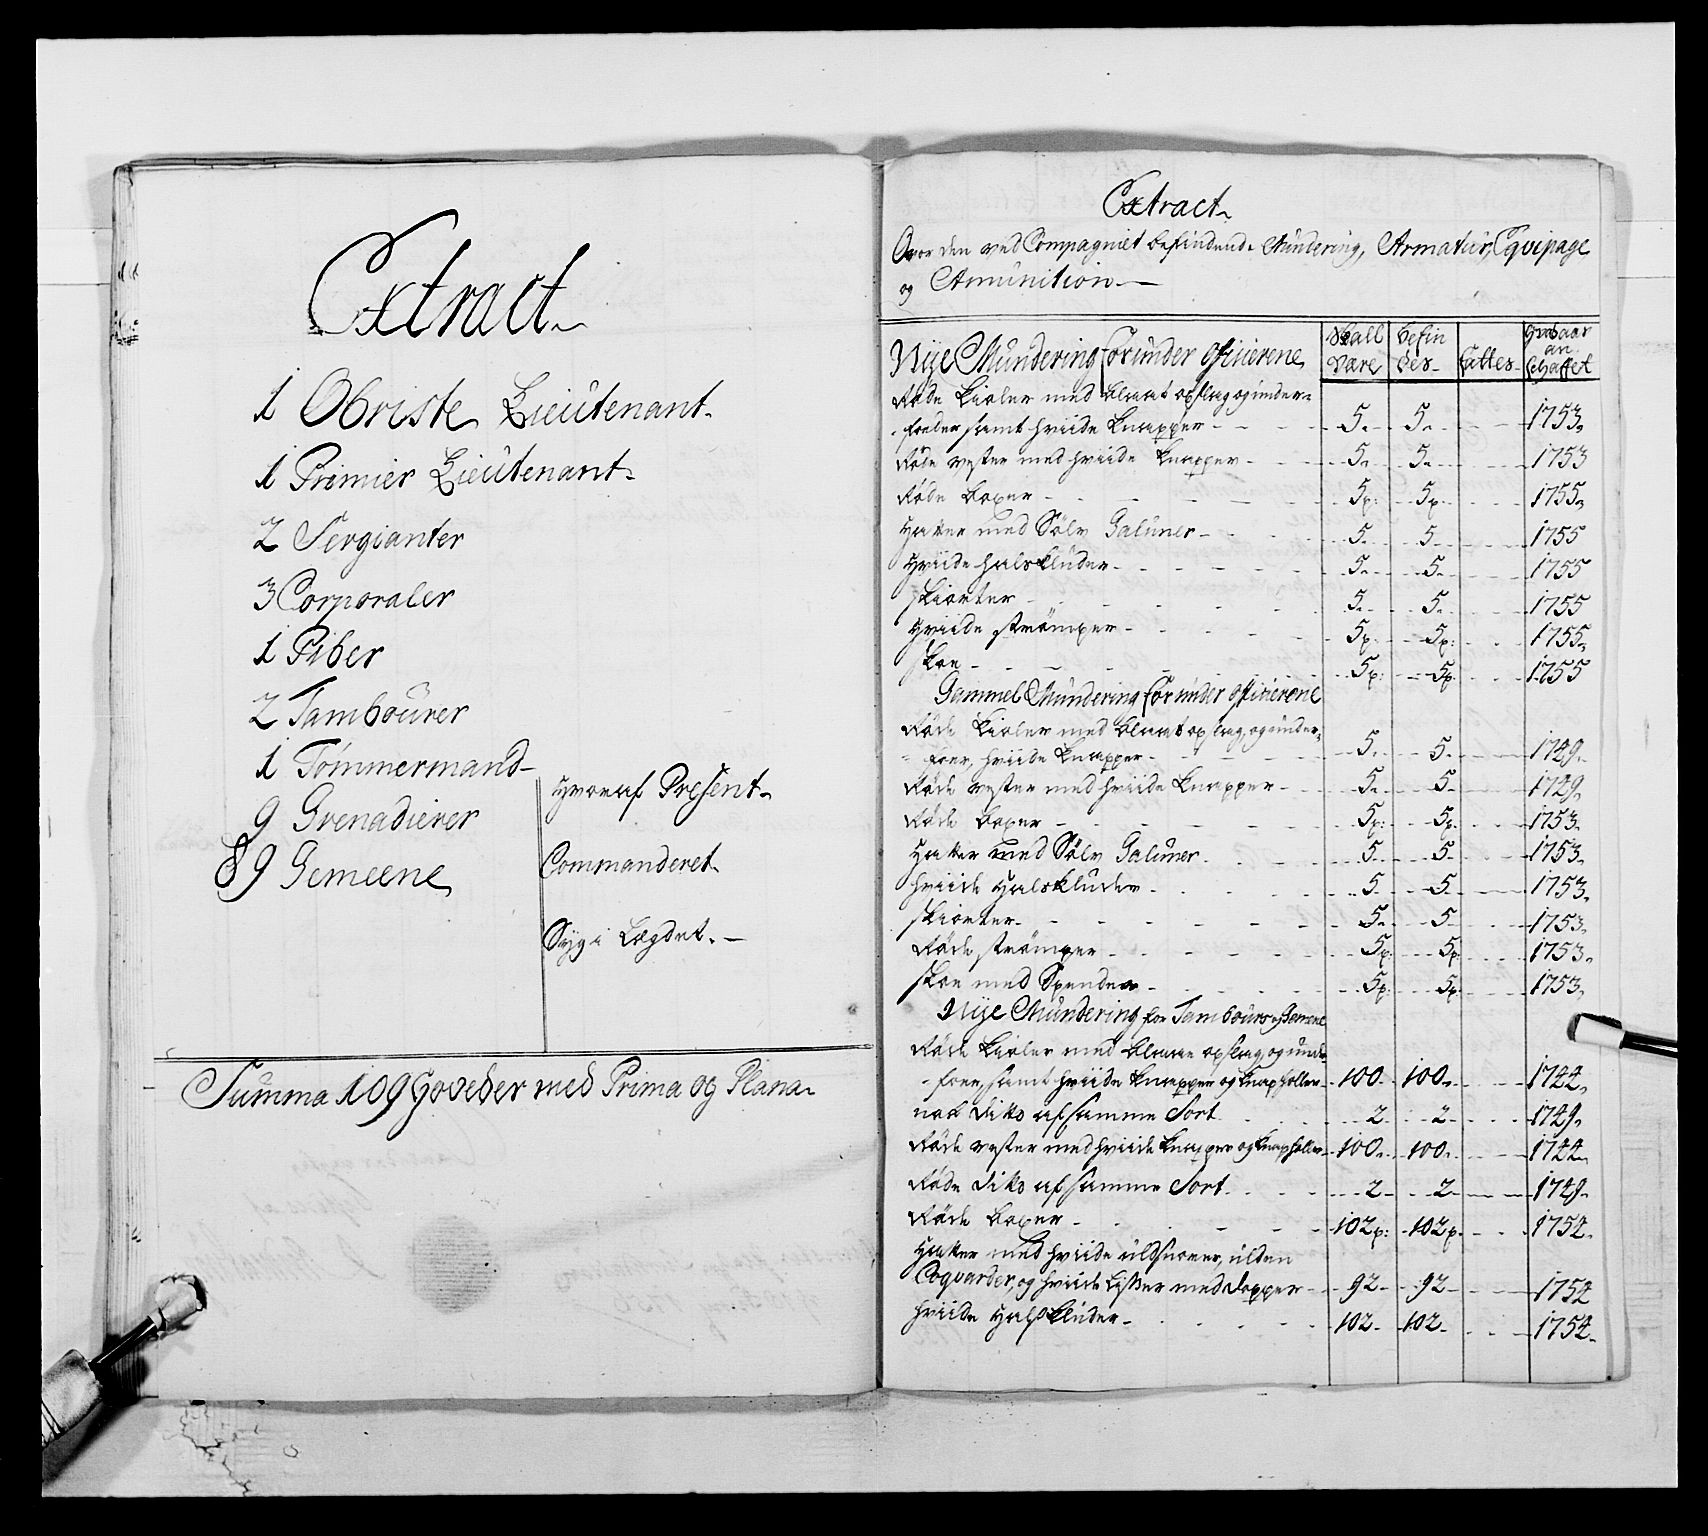 Extract
1 Obriste Lieutenant
1 Premier Lieutenant
2 Sergianter
3 Corporaler
1 Piber
2 Tambourer
1 Tømmermand
9 Grenadierer
89 Gemeene
Hvoraf Present
Commanderet
Syg i Lægdet
Summa 109 Hoveder med Prima og Plana
Extract
Over den ved Compagniet befindende Mundering, Armatur, Eqvipage
og Amunition
Nÿe Mundering for under officierene
Skall være
befindes
fattes
hvad aar anschaffet
Røde kioler med blaat opslag og under-
foeder samt hviide knapper 5 5 1753
Røde vester med hviide knapper 5 5 1753
Røde boxer 5p: 5p: 1755
Hatter med Sølv Galuner 5 5 1755
Hviide halsklude 5 5 1755
skiorter 5 5 1755
Hviide strømper 5p: 5p: 1755
skoe 5p: 5p: 1755
Gammel Mundering for under officierene
Røde kioler med blaat opslag og under-
foer, hviide knapper 5 5 1749
Røde vester med hviide knapper 5 5 1749
Røde boxer 5p: 5p: 1753
Hatter med Sølv Galuner 5 5 1753
hviide Halskluder 5 5 1753
skiorter 5 5 1753
Røde strømper 5p: 5p: 1753
skoe med Spender 5p: 5p: 1753
Nÿe Mundering for Tambours og Gemene
Røde kioler med blaae opslag og under-
foer, samt hviide knapper og knaphuller 100 100 1744
nok dito af samme Sort 2 2 1749
Røde vester med hviide knapper og knaphuller 100 100 1744
Røde dito af samme Sort 2 2 1749
Røde boxer 102p: 102p: 1754
Hatter med hviide uldsnorer, ulden
Coqvarder, og hviide Lidser med dopper 92 92 1754
hviide Halskluder 102 102 1754